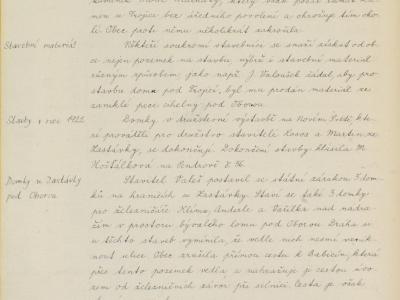 u Trojice bez úředního povolení a ohrožuje tím okolí
Obec proti němu několikrát zakročila.
Stavební materiál
Někteří soukromí stavebníci se snaží získat od obce
nejen pozemek na stavbu, nýbrž i stavební materiál
různým způsobem jako např. J. Valoušek žádal, aby pro
stavbu domu pod Trojicí, byl mu prodán materiál ze
zaniklé pece cihelny pod Oborou.
Stavby v roce 1922
Domky v družstevní výstavbě na Novém Světě, kte
ré prováděli pro družstvo stavitelé Kosos a Martinec ze
Zastávky, se dokončují. Dokončení stavby hlásila M.
Hošťálková na Pendrově č. 36.
Domky u Zastávky pod Oborou
Stavitel Valeš postavil se státní zárukou 5 dom
ků na hranicích u Zastávky. Staví se také 3 domky
pro železničáře Klímu, Anderle a Vašíčka nad nádra
žím v prostoru bývalého lomu pod Oborou. Dráha se
u těchto staveb vymínila, že vedle nich nesmí vznik
nout ulice. Obec zrušila přímou cestu k Babicím, která
přes tento pozemek vedla a nahrazuje ji cestou úvo
zem od železničních závor při silnici. Cesta je však